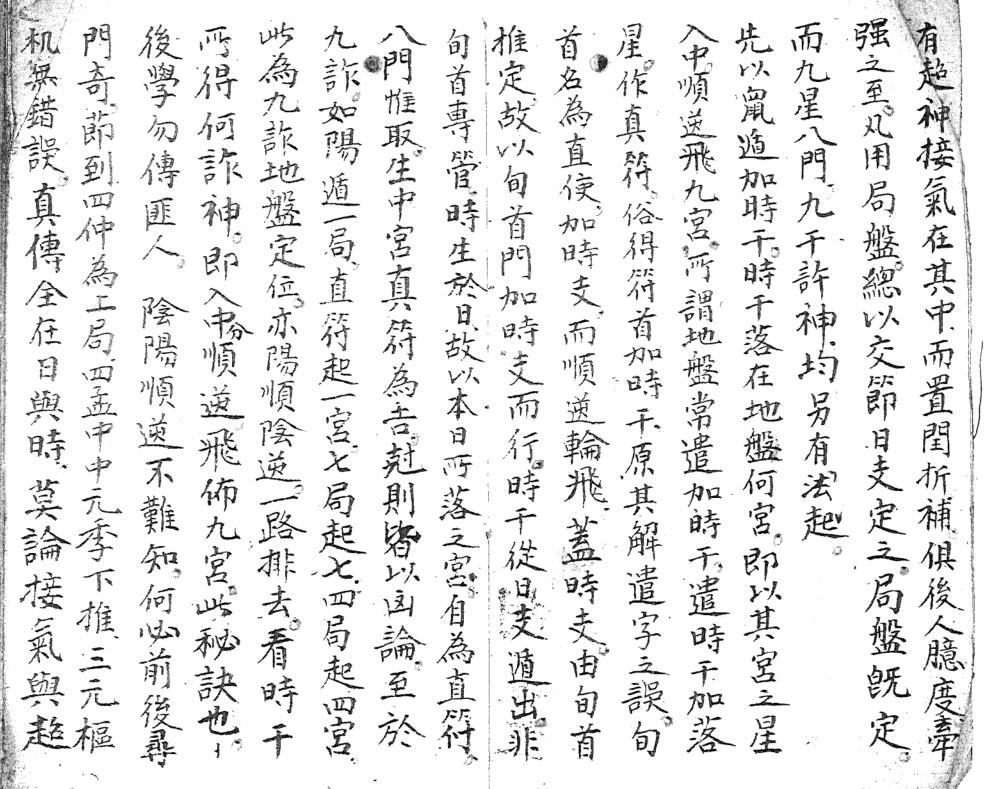 有超神接氣在其中而置閏折補俱後人臆度牽
强之至。凡用局盤。總以交節日支定之。局盤旣定。
而九星八門。九干許神。均另有法起。
先以䆿遁加時干。時干落在地盤何宮。即以其宮之星
入中。順逆飛九宮。所謂地盤常遣加時干。遣時干加落
星。作真符。俗得符首加時干。原其解遣字之誤。旬
首名為直使。加時支。而順逆輪飛。蓋時支。由旬首
推定。故以旬首門加時支而行。時干從日支遁出。非
旬首專管。時生於日。故以本日所落之宮。自為直符。
八門惟取生中宮真符為吉。尅則皆以凶論。至於
九詐。如陽遁一局。直符起一宮。七局起七。四局起四宮
此為九詐地盤定位。亦陽順陰逆。一路排去。看時干
所得何詐神。即入中分順逆飛佈九宮。此秘訣也。
後學勿傳匪人。 陰陽順逆不難知。何必前後尋
門奇。節到四仲為上局。四孟中中元季下推。三元樞
机無錯誤。真傳全在日與時。莫論接氣與超